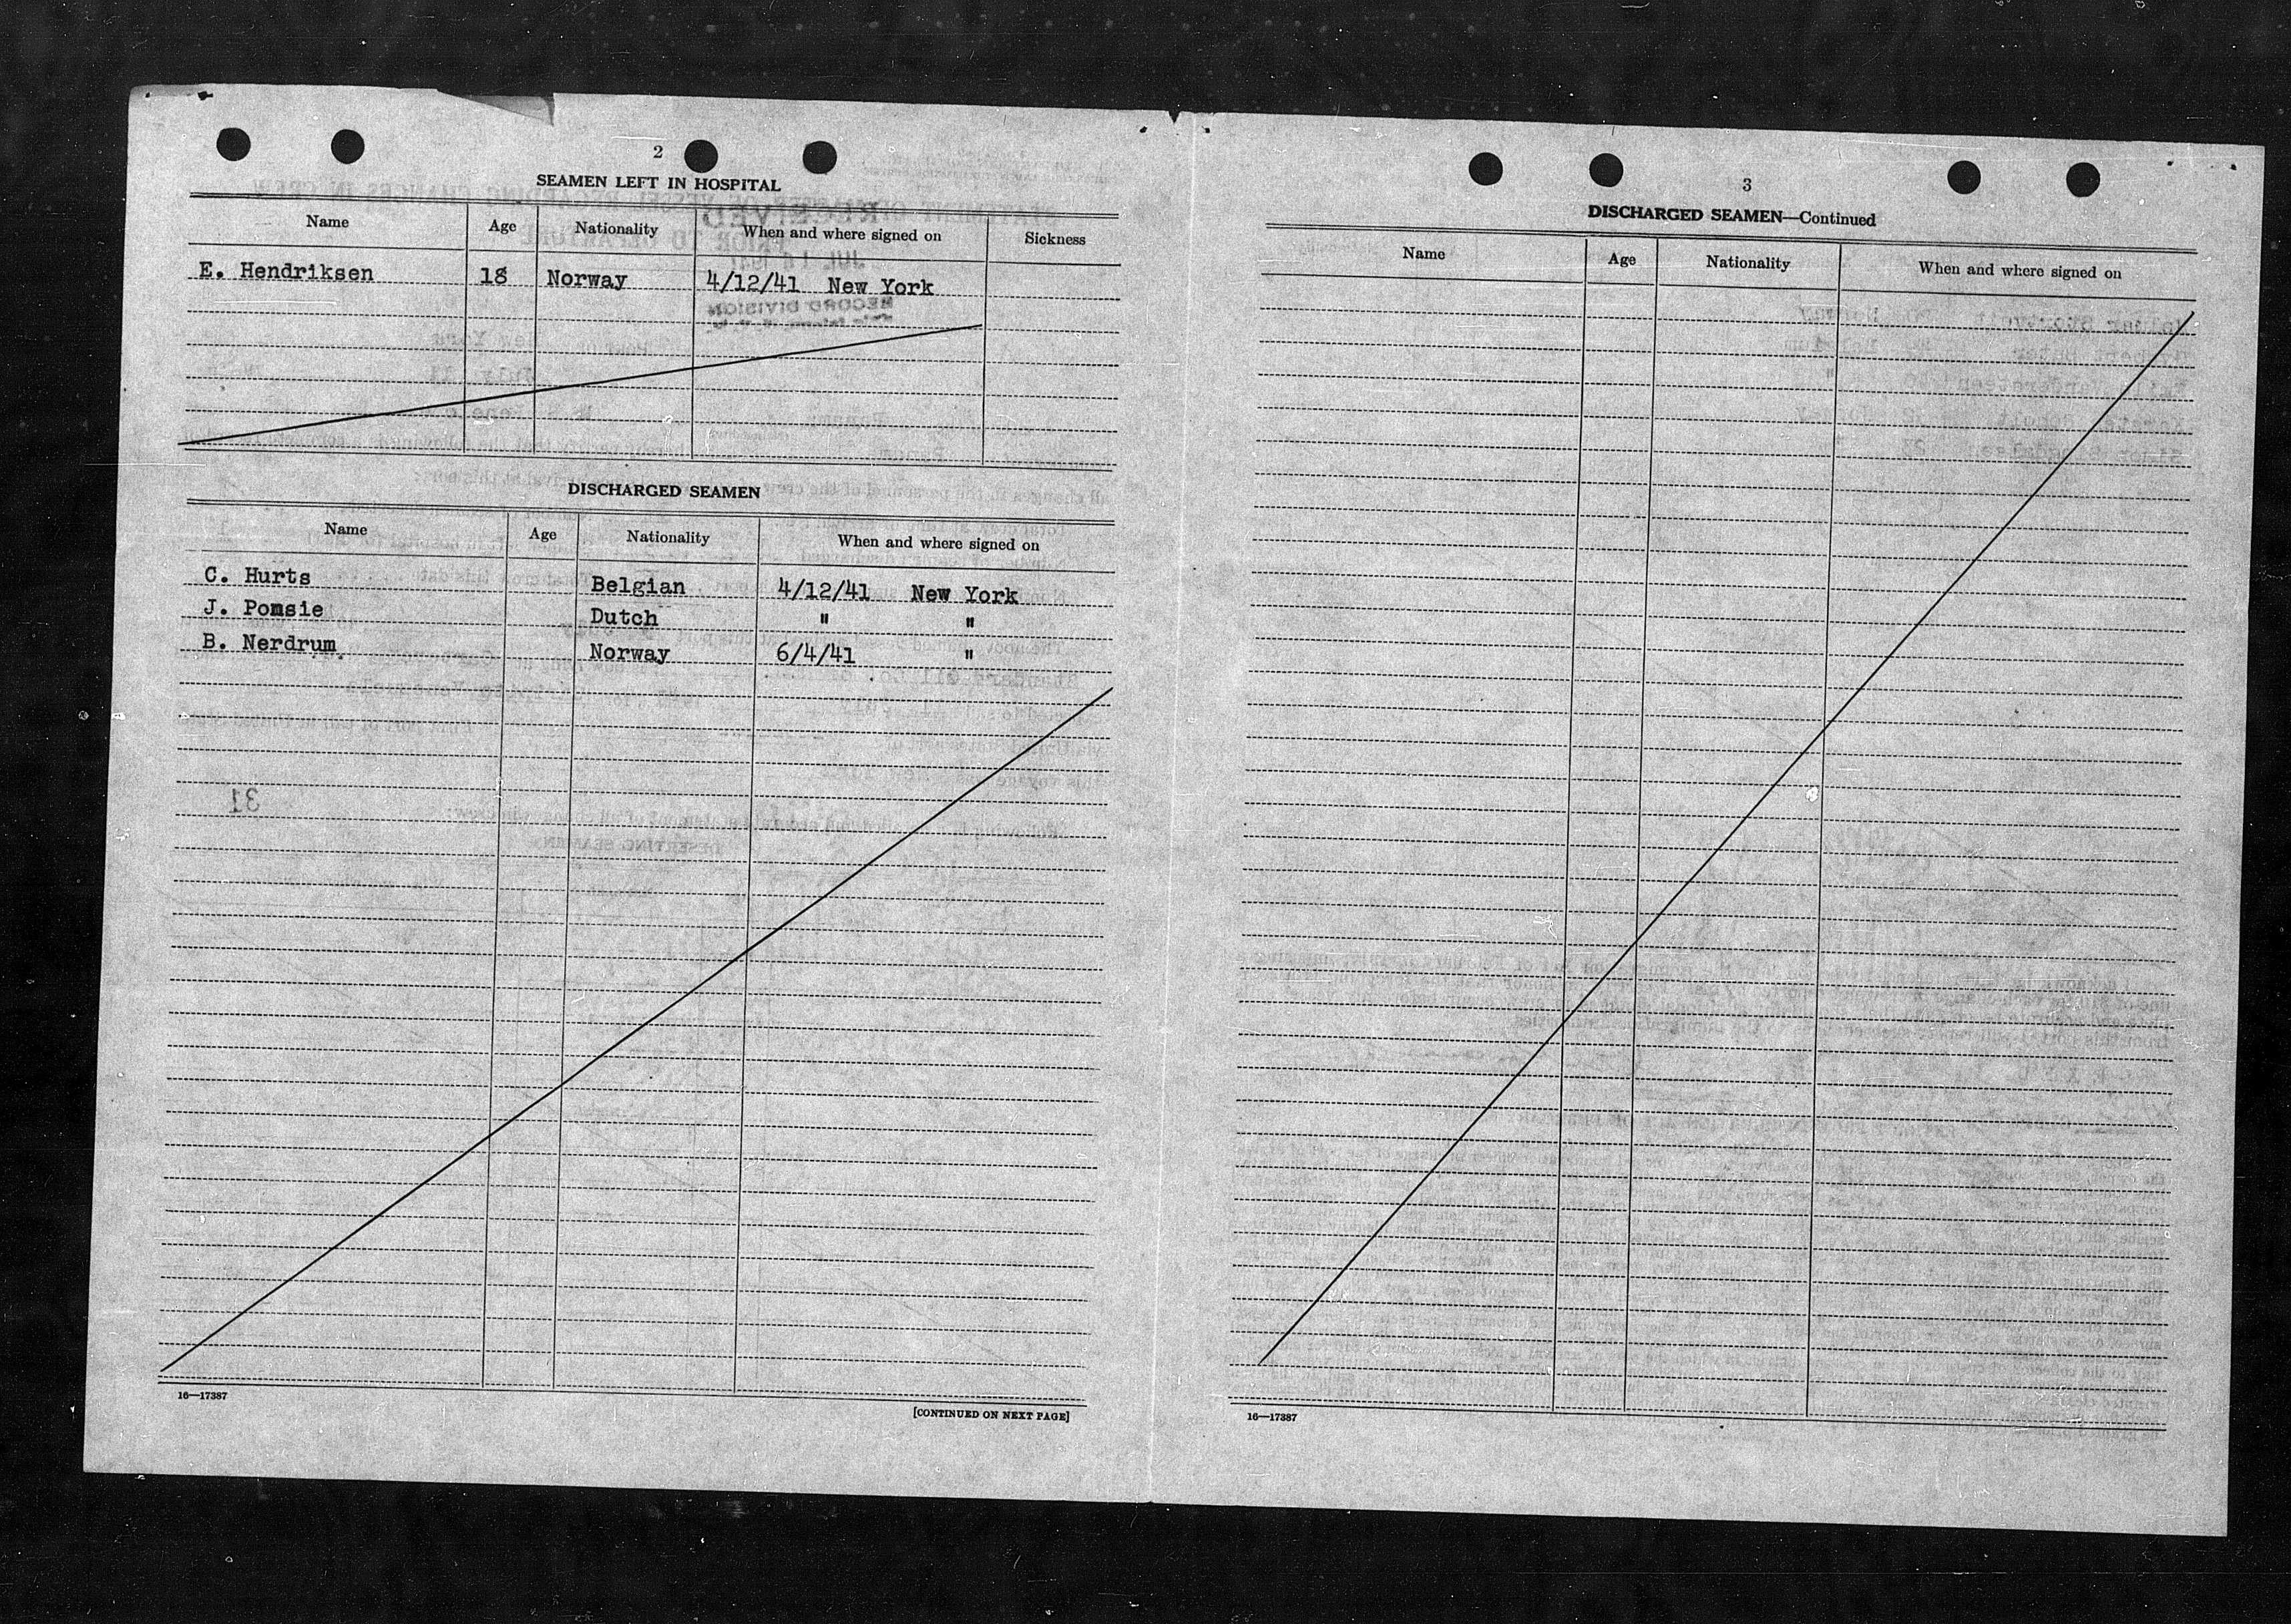 2
SEAMEN LEFT IN HOSPITAL
Name Age Nationality When and where signed on Sickness
E. Hendriksen 18 Norway 4/12/41 New York
DISCHARGED SEAMEN
Name Age Nationality When and where signed on
C. Hurts Belgian 4/12/41 New York
J. Pomsie Dutch " "
B. Nerdrum. Norway 6/4/41 "
16—17387
[CONTINUED ON NEXT PAGE]
3
DISCHARGED SEAMEN—Continued
Name Age Nationality When and where signed on
16—17387